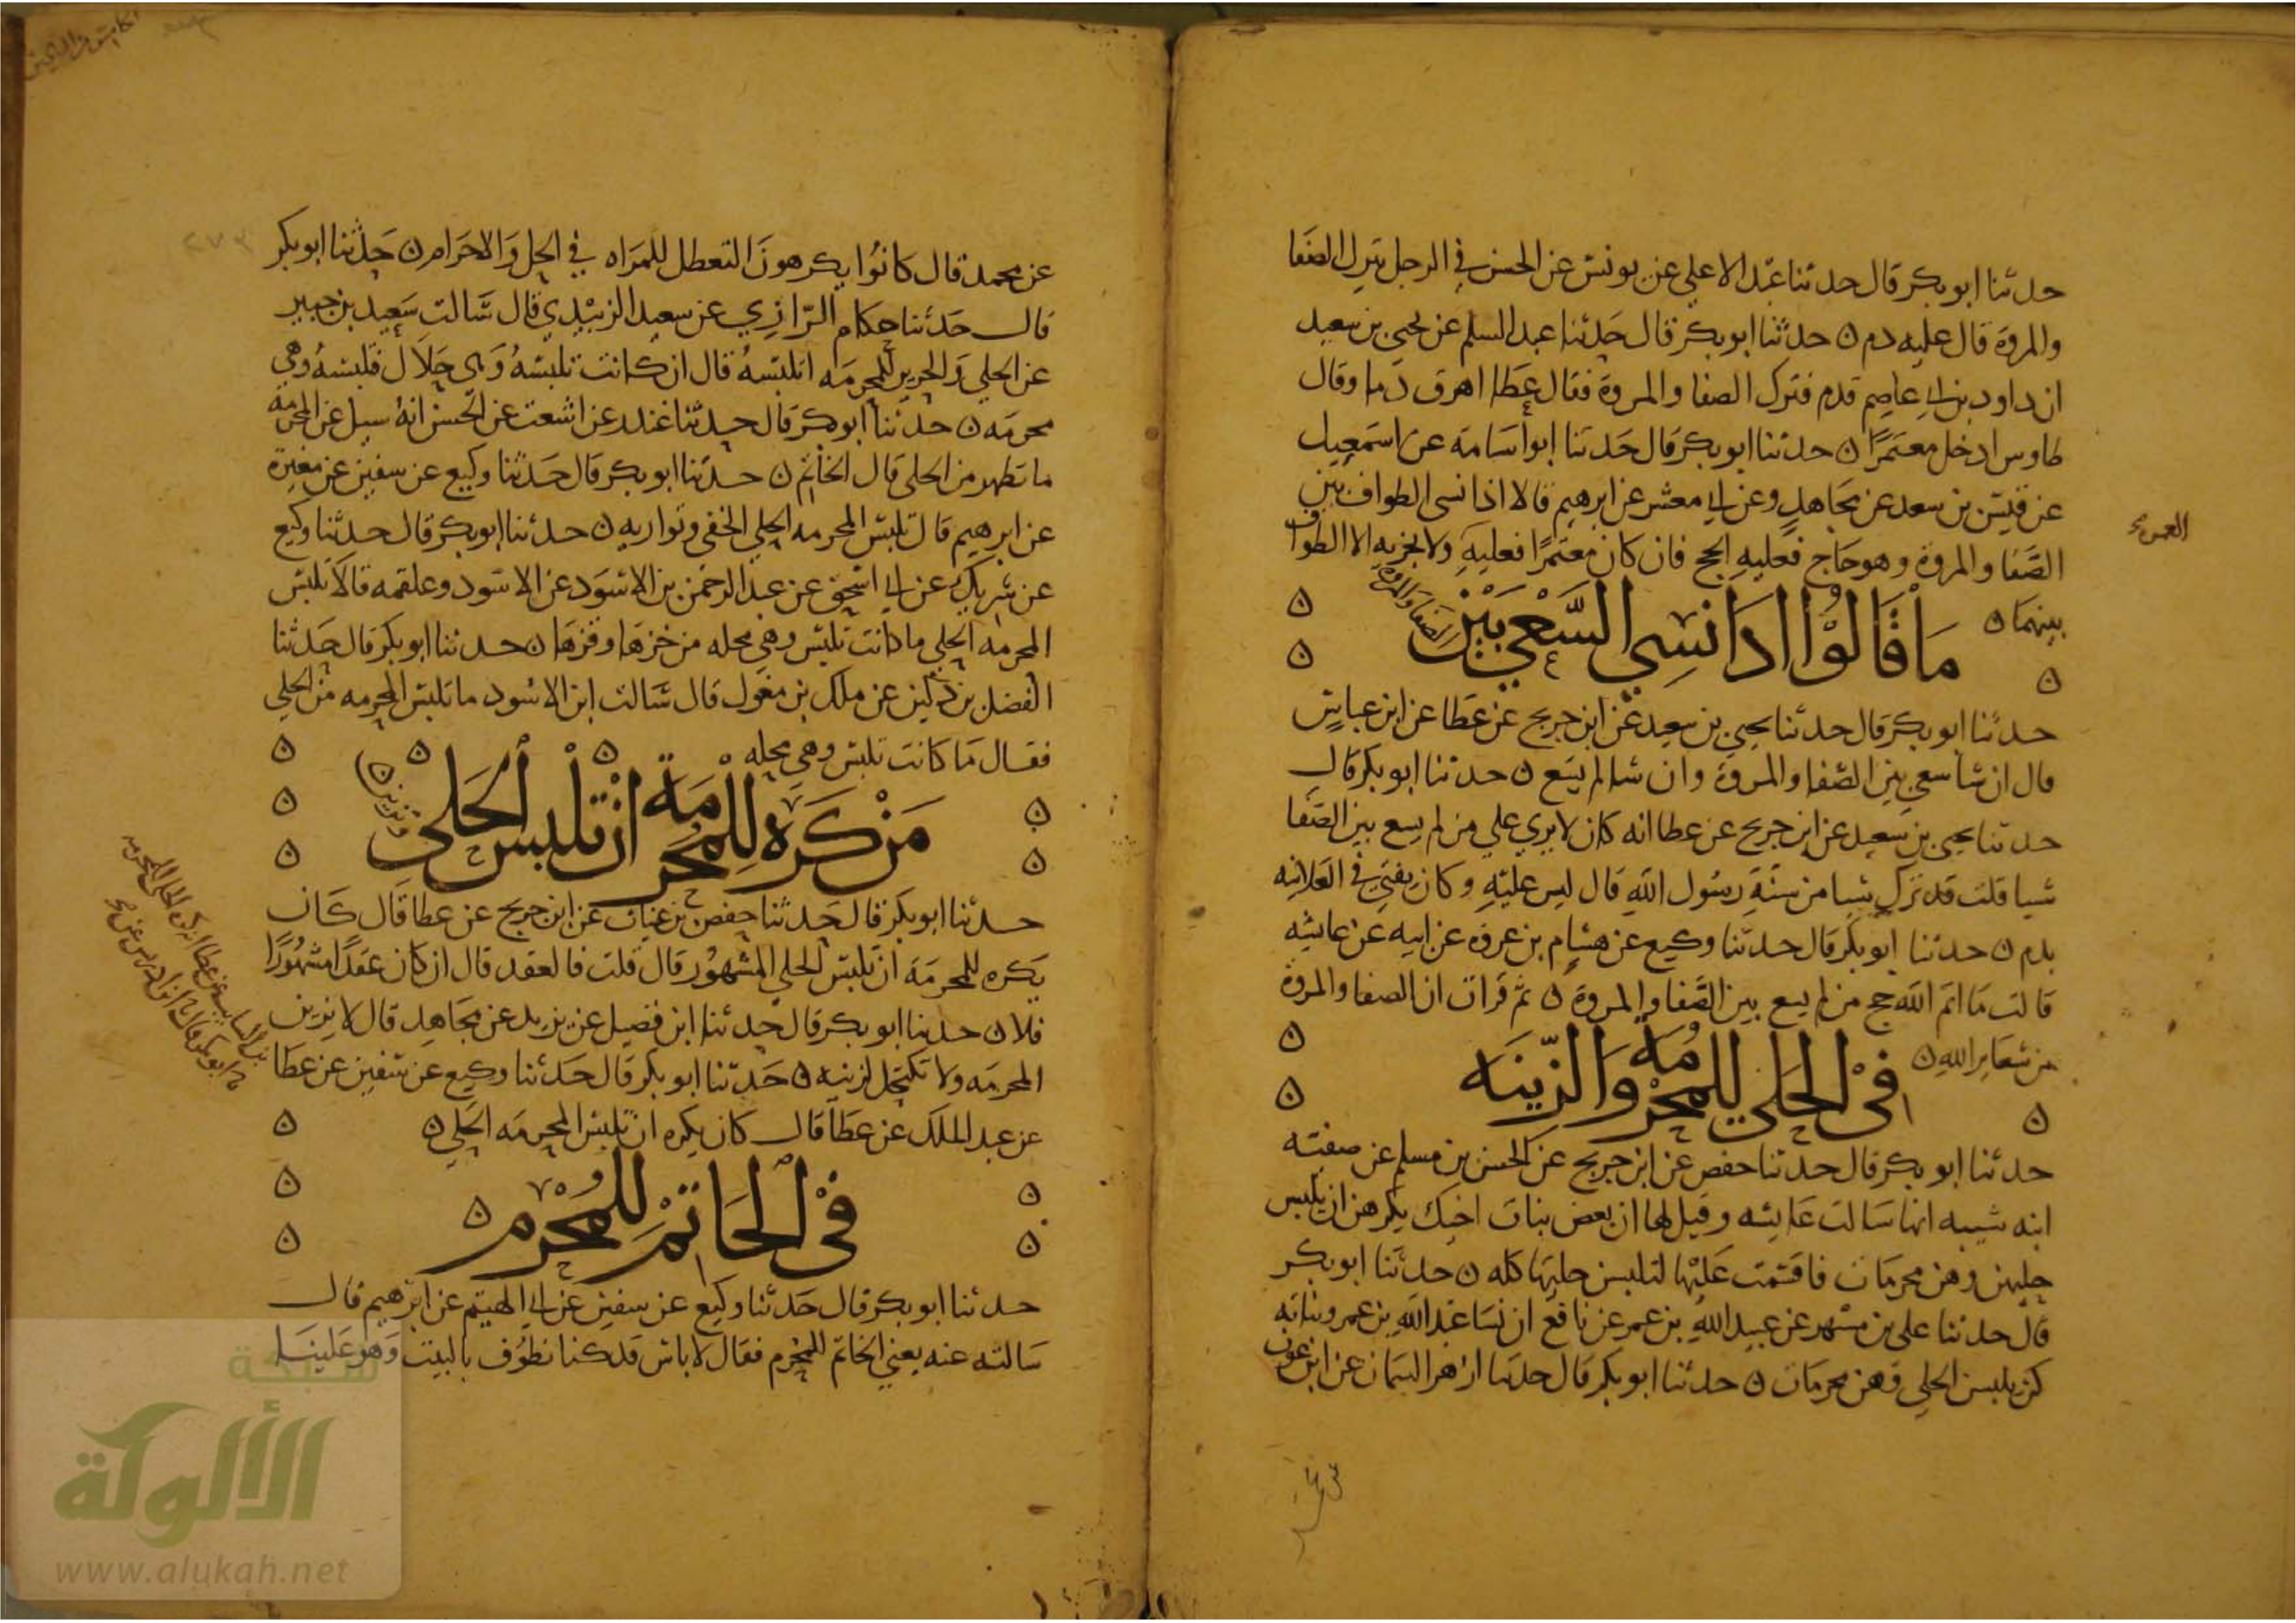 حدثنا ابو بكر قال حدثنا عبد الاعلي عن يونس عن الحسن في الرجل يترك الصفا
والمروة قال عليه دم ن حدثنا ابو بكر قال حدثنا عبد السلم عن يحيي بن سعيد
ان داود بن ابي عاصم قدم فترك الصفا والمروة فقال عطا اهرق دما وقال
طاوس ادخل معتمرا ن حدثنا ابو بكر قال حدثنا ابو اسامة عن اسمعيل
عن قيس بن سعد عن مجاهد وعن ابي معشر عن ابرهيم قالا اذا نسي الطواف بين
الصفا والمروة وهو حاج فعليه الحج فان كان معتمرا فعليه العمرة ولا يجزيه الا الطواف
بينهما ن
ما قالوا اذا نسي السعي بين الصفا والمروة
حدثنا ابو بكر قال حدثنا يحيي بن سعيد عن ابن جريج عن عطا عن ابن عباس
قال ان شا سعي بين الصفا والمروة وان شا لم يسع ن حدثنا ابو بكر قال
حدثنا يحيي بن سعيد عن ابن جريج عن عطا انه كان لا يري علي من لم يسع بين الصفا
شيا قلت قد ترك شيا من سنة رسول الله قال ليس عليه وكان يفتي في العلانيه
بدم ن حدثنا ابو بكر قال حدثنا وكيع عن هشام بن عروه عن ابيه عن عائشه
قالت ما اتم الله حج من لم يسع بين الصفا والمروة ن ثم قرات ان الصفا والمروة
من شعاير الله ن
في الحلي للمحرمه والزينه
حدثنا ابو بكر قال حدثنا حفص عن ابن جريج عن الحسن بن مسلم عن صفيه
ابنه شيبه انها سالت عايشه وقيل لها ان بعض بنات اخيك يكرهن ان يلبس
حليهن وهن محرمات فاقسمت عليها لتلبسن حليها كله ن حدثنا ابو بكر
قال حدثنا علي بن مسهر عن عبيد الله بن عمر عن نافع ان نسا عبد الله بن عمر وبناته
كن يلبسن الحلي وهن محرمات ن حدثنا ابو بكر قال حدثنا ازهر السمان عن ابن عون
عن محمد قال كانوا يكرهون التعطل للمراه في الحل والاحرام ن حدثنا ابو بكر
قال حدثنا حكام الرازي عن سعيد الزبيدي قال سالت سعيد بن جبير
عن الحلي والحرير للمحرمه اتلبسه قال ان كانت تلبسه وهي حلال فلبسه وهي
محرمه ن حدثنا ابو بكر قال حدثنا غندر عن اشعث عن الحسن انه سيل عن المحرمة
ما تظهر من الحلي قال الخاتم ن حدثنا ابو بكر قال حدثنا وكيع عن سفين عن مغيرة
عن ابرهيم قال تلبس المحرمه الحلي الخفي وتواريه ن حدثنا ابو بكر قال حدثنا وكيع
عن شريك عن ابي اسحق عن عبد الرحمن بن الاسود عن الاسود وعلقمه قالا تلبس
المحرمه الحلي ما كانت تلبس وهي محله من خزها وقزها ن حدثنا ابو بكر قال حدثنا
الفضل بن دكين عن ملك بن مغول قال سالت ابن الاسود ما تلبس المحرمه من الحلي
فقال ما كانت تلبس وهي محله
من كره للمحرمة ان تلبس الحلي وتزين ن
حدثنا ابو بكر قال حدثنا حفص بن غياث عن ابن جريج عن عطا قال كان
يكره للمحرمة ان تلبس الحلي المشهور قال قلت فالعقد قال ان كان عقدا مشهورا
فلا ن حدثنا ابو بكر قال حدثنا ابن فضيل عن يزيد عن مجاهد قال لا تزين
المحرمه ولا تكتحل لزينه ن حدثنا ابو بكر قال حدثنا وكيع عن سفين عن عطا
عن عبد الملك عن عطا قال كان يكره ان تلبس المحرمه الحلي ن
في الخاتم للمحرم ن
حدثنا ابو بكر قال حدثنا وكيع عن سفين عن ابي الهيثم عن ابرهيم قال
سالته عنه يعني الخاتم للمحرم فقال لا باس قد كنا نطوف بالبيت وهو علينا
٢٧٣
شبكة
الألوكة
www.alukah.net